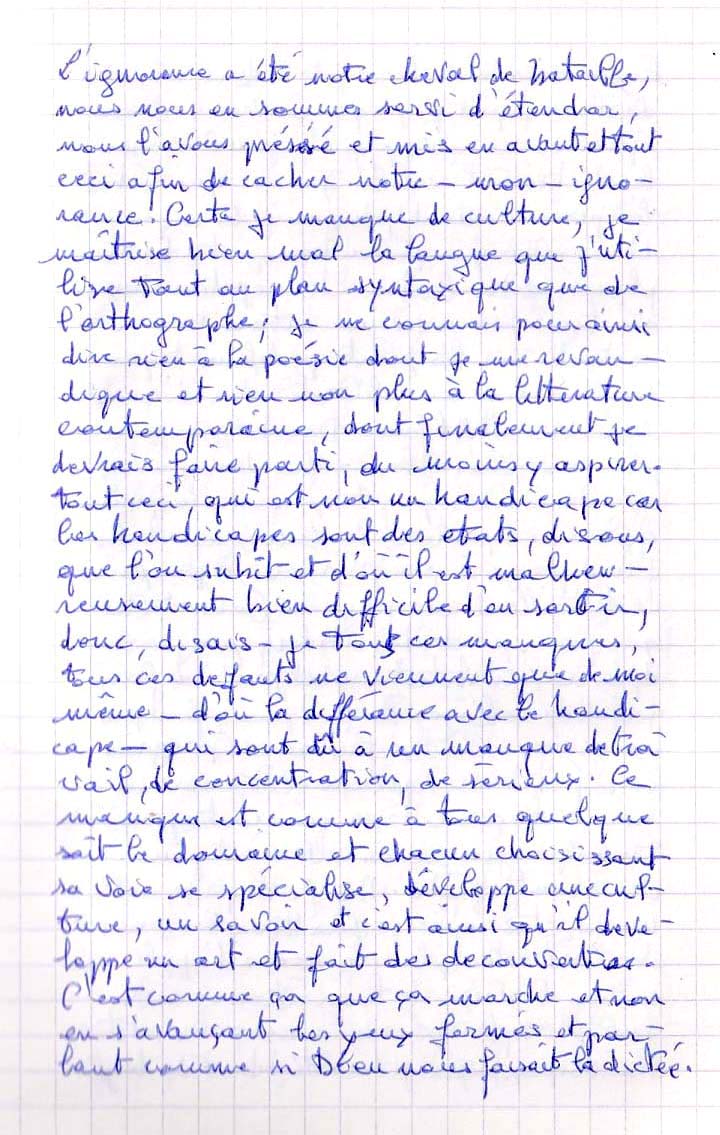 L'ignorance a été notre cheval de bataille,
nous nous en sommes servi d'étendar,
nous l'avons et mis en avant et tout
ceci afin de cacher notre – mon – igno-
rance. Certe je manque de culture, je
maîtrise bien mal la langue que j'uti-
lise tant au plan syntaxique que de
l'orthographe ; je ne connais pour ainsi
dire rien à la poésie dont je me revan-
dique et rien non plus à la littérature
contemporaine, dont finalement je
devrais faire parti, du moins y aspirer.
Tout ceci, qui est non un handicape car
les handicapes sont des etats, disons,
que l'on subit et d'où il est malheu-
reusement bien difficile d'en sortir,
donc, disais-je tous ces manques,
tous ces defauts ne viennent que de moi
même – d'où la différance avec le handi-
cape – qui sont dû à un manque de tra
vail, de concentration, de sérieux. Ce
manque est comme à tous quelque
soit le domaine et chacun choisissant
sa voie se spécialise, développe une cul-
ture, un savoir et c'est ainsi qu'il deve-
loppe un art et fait des decouvertes.
C'est comme ça que ça marche et non
en s'avançant les yeux fermés et par-
lant comme si Dieu nous faisait la dictée.